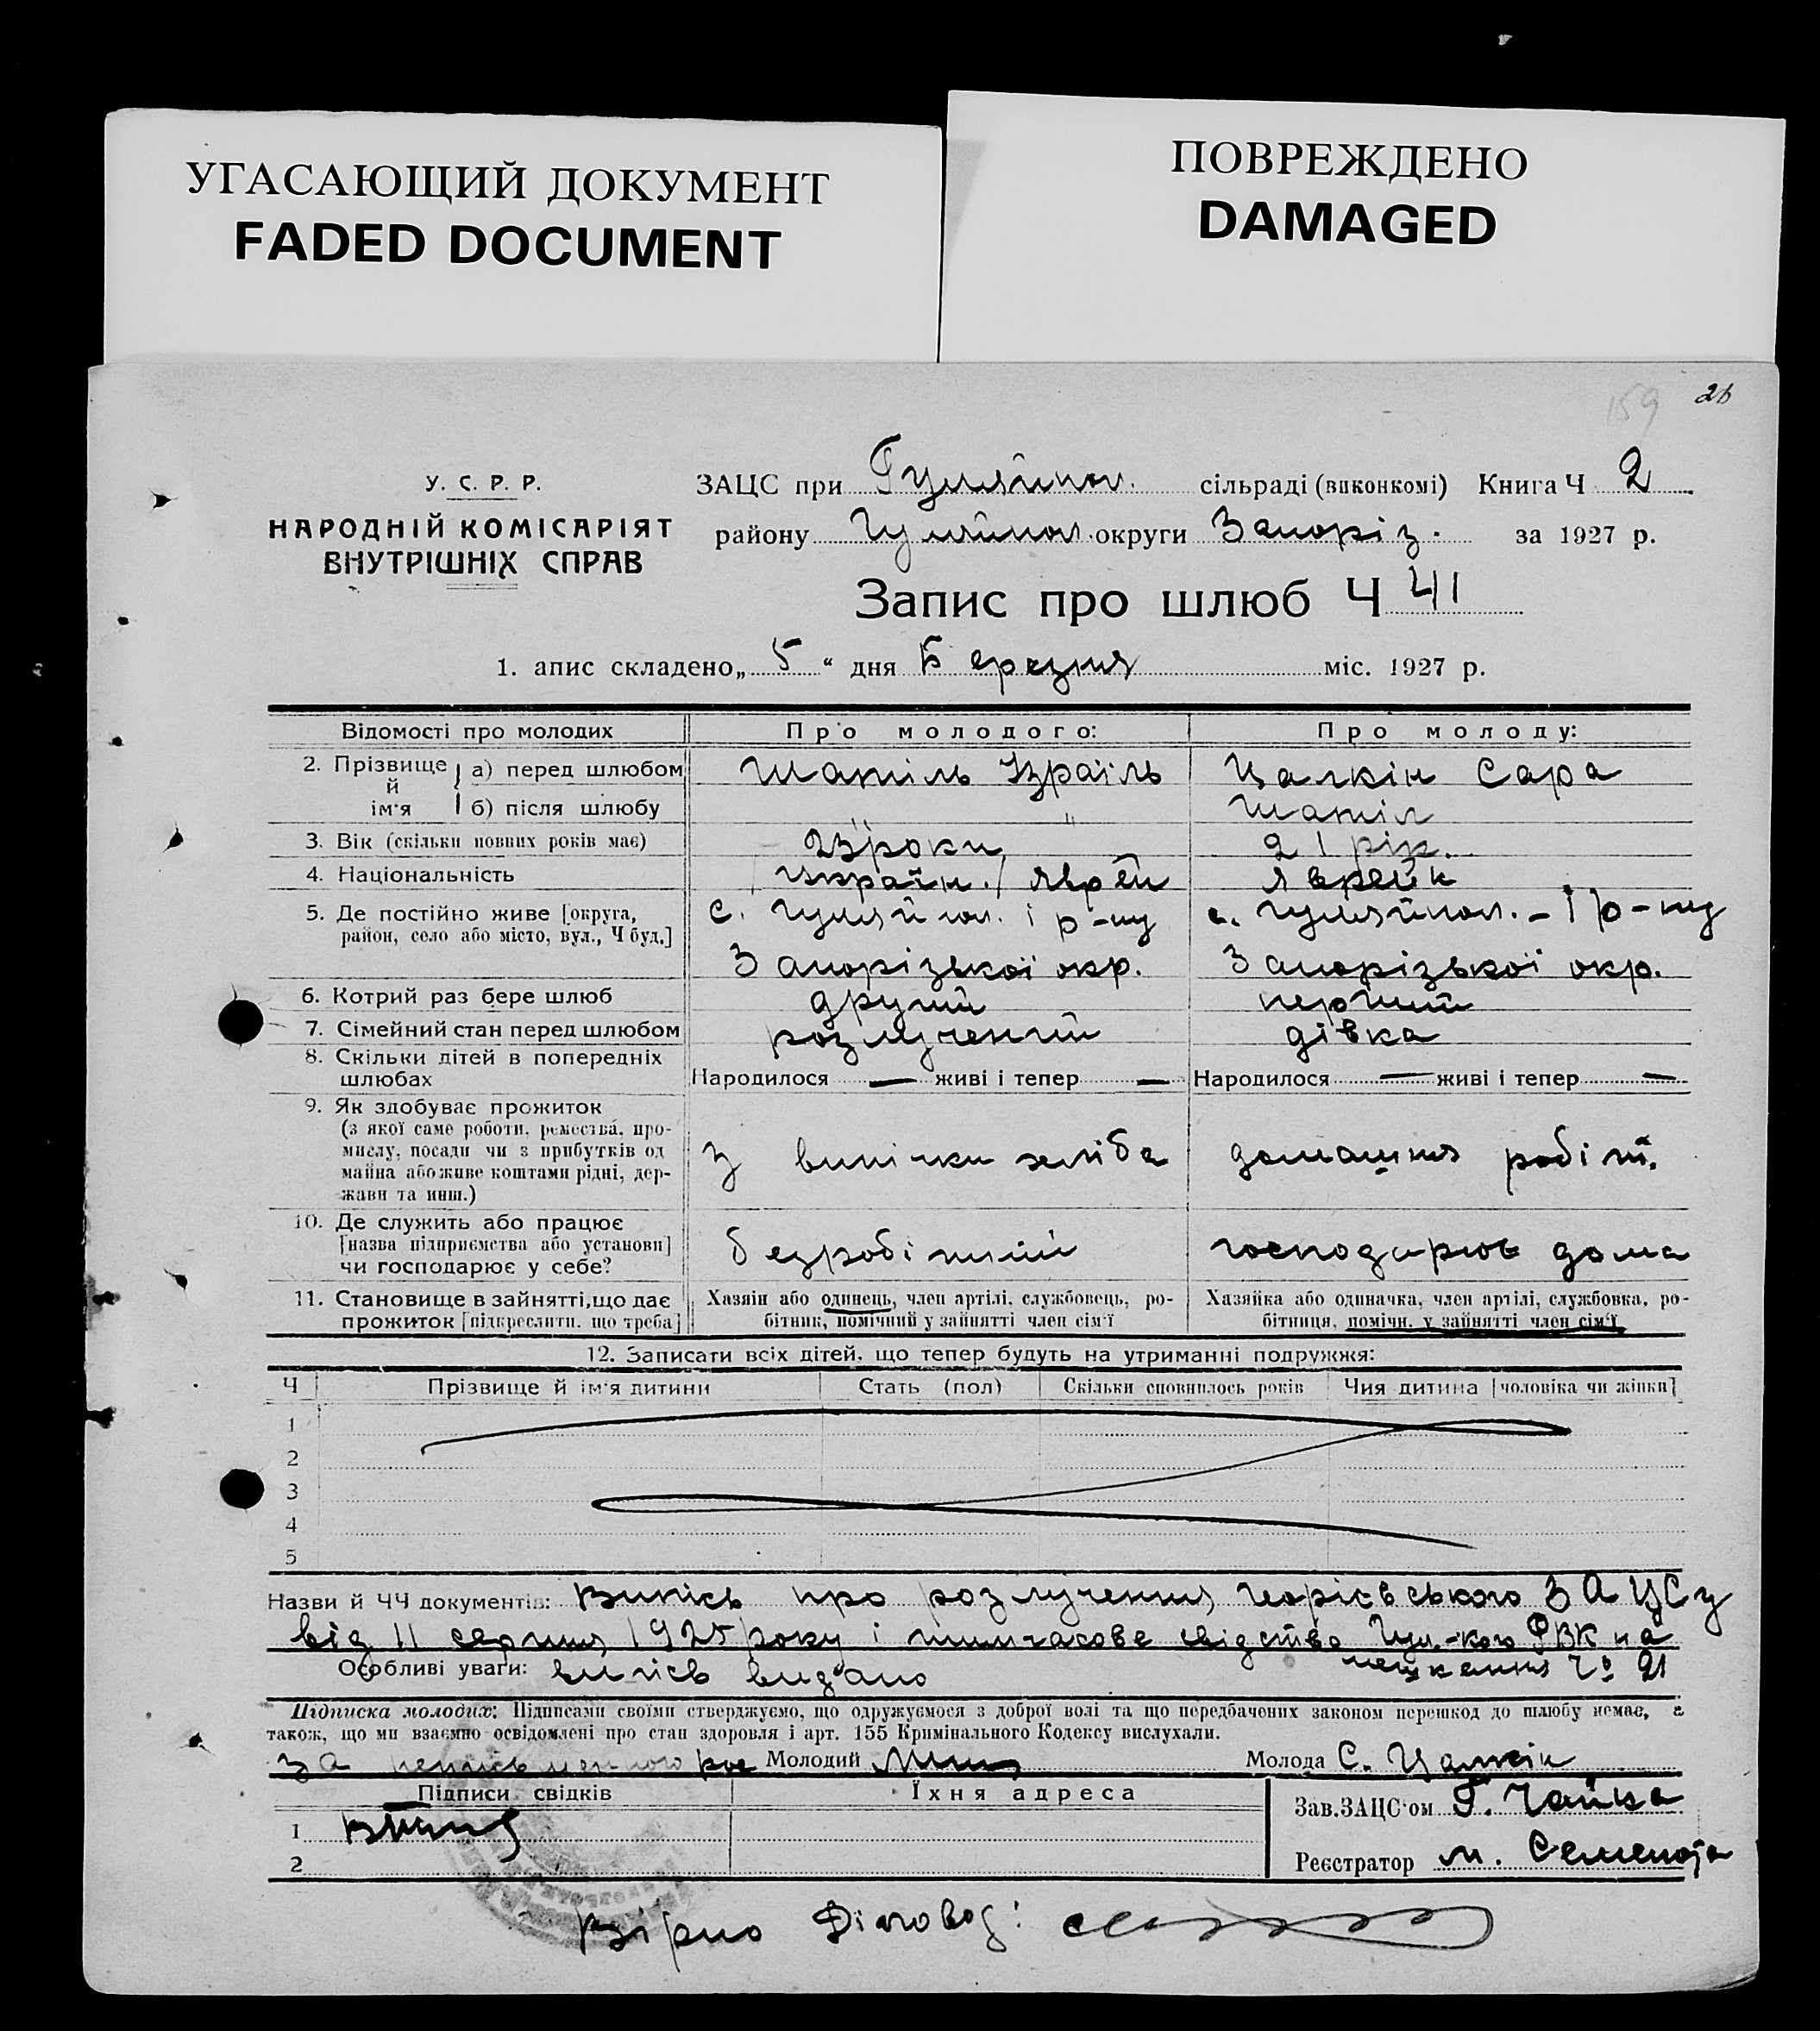 УГАСАЮЩИЙ ДОКУМЕНТ
FADED DOCUMENT
ПОВРЕЖДЕНО
DAMAGED
159 26
У. С. Р. Р.
НАРОДНІЙ КОМІСАРІЯТ
ВНУТРІШНІХ СПРАВ
ЗАЦС при Гуляйпол. сільраді (виконкомі) Книга Ч 2
району Гуляйпол. округи Запоріз. за 1927 р.
Запис про шлюб Ч 41
1. апис складено „ 5 “ дня Березня міс. 1927 р.
Відомості про молодих Про молодого: Про молоду:
2. Прізвище й ім'я
а) перед шлюбом Шапіль Ізраїль Цалкін Сара
б) після шлюбу " " Шапіл
3. Вік (скільки повних років має) 23 роки 21 рік.
4. Національність Україн. / Яврей Яврейк
5. Де постійно живе [округа, с. Гуляйпол. і р-ну с. Гуляйпол. - і р-ну
район, село або місто, вул., Ч буд.]
Запорізької окр. Запорізької окр.
6. Котрий раз бере шлюб другий перший
7. Сімейний стан перед шлюбом розлучений дівка
8. Скільки дітей в попередніх
шлюбах Народилося — живі і тепер — Народилося — живі і тепер —
9. Як здобуває прожиток
(з якої саме роботи, ремества, про-
мислу, посади чи з прибутків од З випічки хліба домашня робіт.
майна або живе коштами рідні, дер-
жави та инш.)
10. Де служить або працює
[назва підприємства або установи] безробітний господарює дома
чи господарює у себе?
11. Становище в зайнятті, що дає Хазяїн або одинець, член артілі, службовець, ро- Хазяйка або одиначка, член артілі, службовка, ро-
прожиток [підкреслити, що треба] бітник, помічний у зайнятті член сім'ї бітниця, помічн. у зайнятті член сім'ї
12. Записати всіх дітей, що тепер будуть на утриманні подружжя:
Ч Прізвище й ім'я дитини Стать (пол) Скільки сповнилось років Чия дитина [чоловіка чи жінки]
1
2
3
4
5
Назви й ЧЧ документів: Випісь про розлучення Георієвського ЗАЦСу
від 11 серпня 1925 року і тимчасове свідство Гул.-кого РВК на
мешкання Чо 21
Особливі уваги: випісь видано
Підписка молодих: Підписами своїми стверджуємо, що одружуємося з доброї волі та що передбачених законом перешкод до шлюбу немає, а
також, що ми взаємно освідомлені про стан здоровля і арт. 155 Кримінального Кодексу вислухали.
За Молодий Молода С. Цалкін
Підписи свідків Їхня адреса
Зав. ЗАЦС'ом Г. Чайка
1
2
Реєстратор М.
Вірно Діловод: